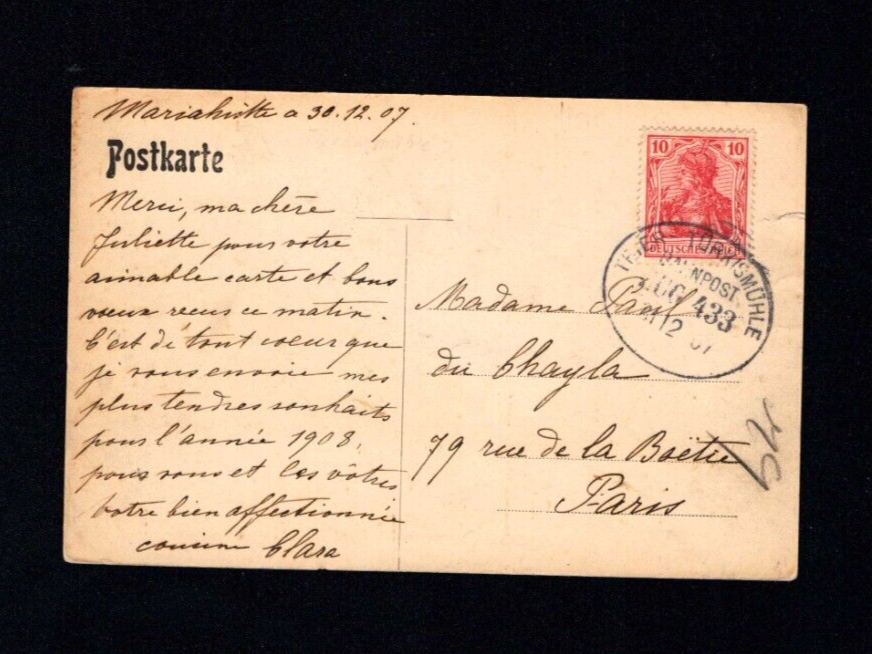 Mariahütte a 30.12.07
Postkarte
Merci, ma chère
Juliette pour votre
aimable carte et bons
voeux recus ce matin.
C'est de tout coeur que
je vous envoie mes
plus tendres souhaits
pour l'année 1908,
pour vous et les vôtres
votre bien affectionnée
cousine Clara
10 10
DEUTSCHES
TRIER TÜRKISMÜHLE
BAHNPOST
ZUG 433
12 07
Madame Paul
du Chayla
79 rue de la Boëtie
Paris